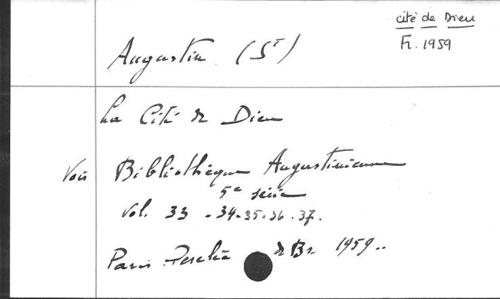 cité de Dieu
Fr. 1959
Augustin (St)
La Cité de Dieu
Voir Bibliothèque Augustinienne
5e série
vol. 33 -34-35-36-37.
Paris Desclée de Br. 1959..